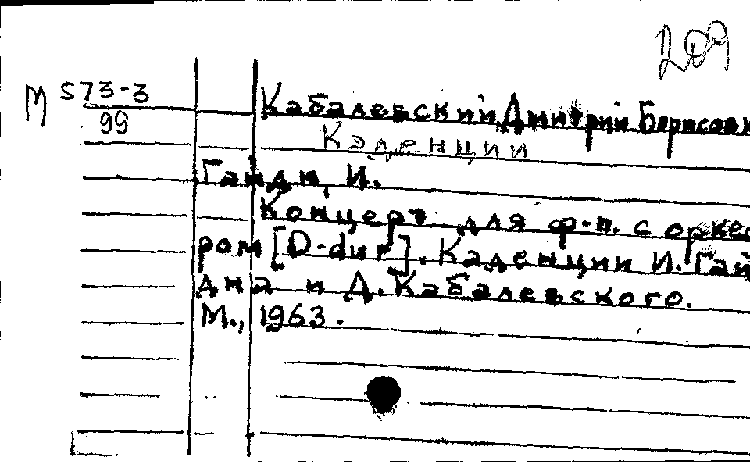 209
М 573-3
99
Кабалевский Дмитрий Борисови
Каденции
Гайдн, И.
Концерт для ф-п. с орке
ром [D-dur]. Каденции И. Гай
дна и Д. Кабалевского.
М., 1963.